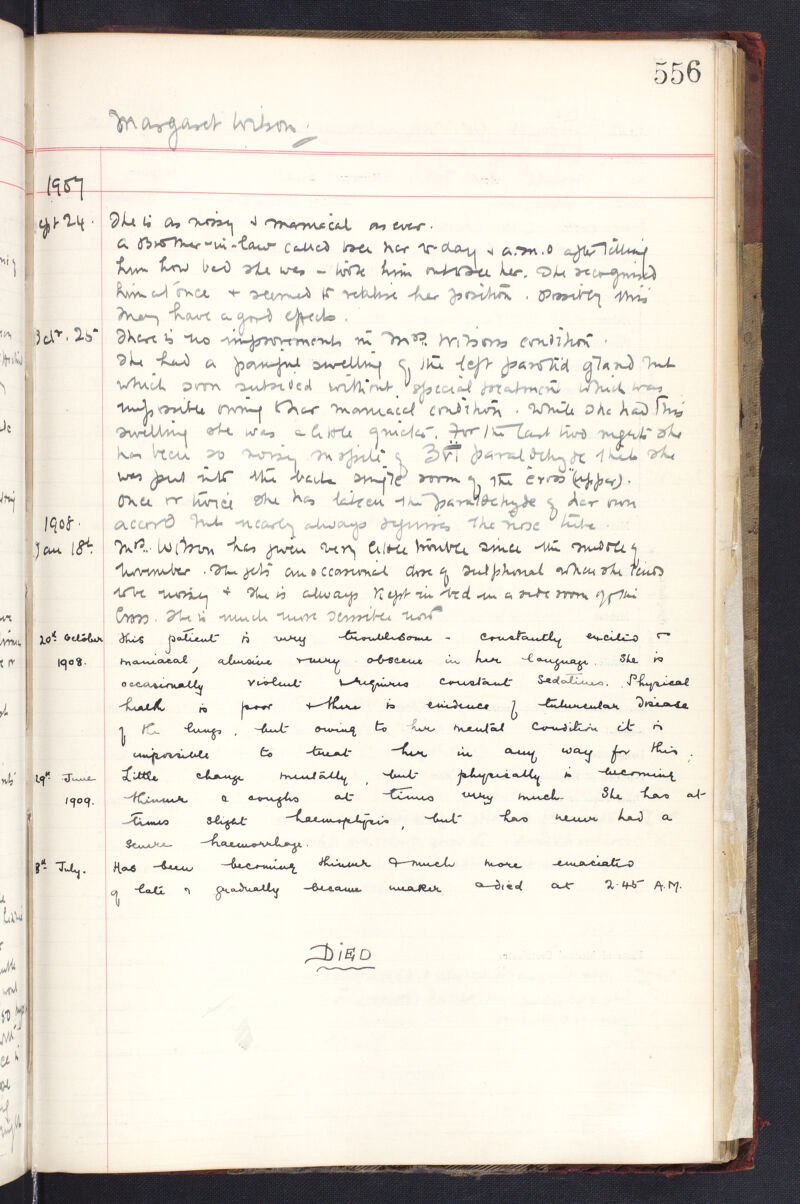 556
Margaret Wilson.
1907
Sept 24. She is as noisy & maniacal as ever.
A Brother-in-law called to see her to-day & A.M.O after telling
him how bad she was – took him out to see her. She recognised
him at once & seemed to realise her position. Possibly this
may have a good effect.
Octr. 25 There is no improvement in Mrs. Wilsons condition.
She had a painful swelling of the left parotid gland but
which soon subsided without special treatment which was
impossible owing to her maniacal condition. While she had this
swelling she was a little quieter. For the last two nights she
has been so noisy in spite of ʒvi paraldehyde that she
was put into the back single room of the Cross (upper).
Once or twice she has taken the paraldehyde of her own
accord but nearly always requires the nose tube.
1908.
Jan 18th. Mrs. Wilson has given very little trouble since the middle of
November. She gets an occasional dose of sulphonal when she tends
to be noisy & she is always kept in bed in a side room of the
Cross. She is much more sensible now
20th October This patient is very troublesome – constantly excited &
1908. maniacal, abusive & very obscene in her language. She is
occasionally violent & requires constant sedatives. Physical
health is poor & there is evidence of tubercular disease
of the lungs, but owing to her mental condition it is
impossible to treat her in any way for this.
29th June Little change mentally, but physically is becoming
1909. thinner & coughs at times very much. She has at
times slight haemoptysis, but has never had a
severe haemorrhage.
8th July. Has been becoming thinner & much more emaciated
of late & gradually became weaker & died at 2.45 A.M.
DIED